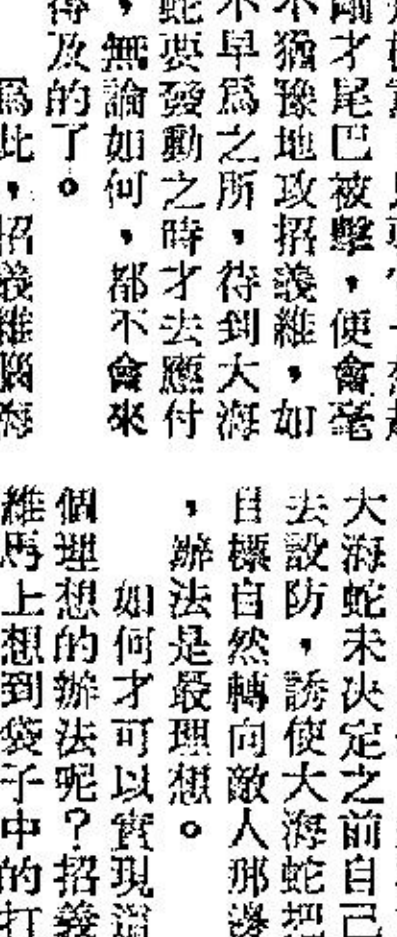 剛才尾巴被擊，便會毫
不猶豫地攻招義維，如
不早爲之所，待到大海
蛇要發動之時才去應付
，無論如何，都不會來
得及的了。
爲此，招義維腦海
大海蛇未決定之前自己
去設防，誘使大海蛇把
目標自然轉向敵人那邊
，辦法是最理想。
如何才可以實現這
個理想的辦法呢？招義
維馬上想到袋子中的打